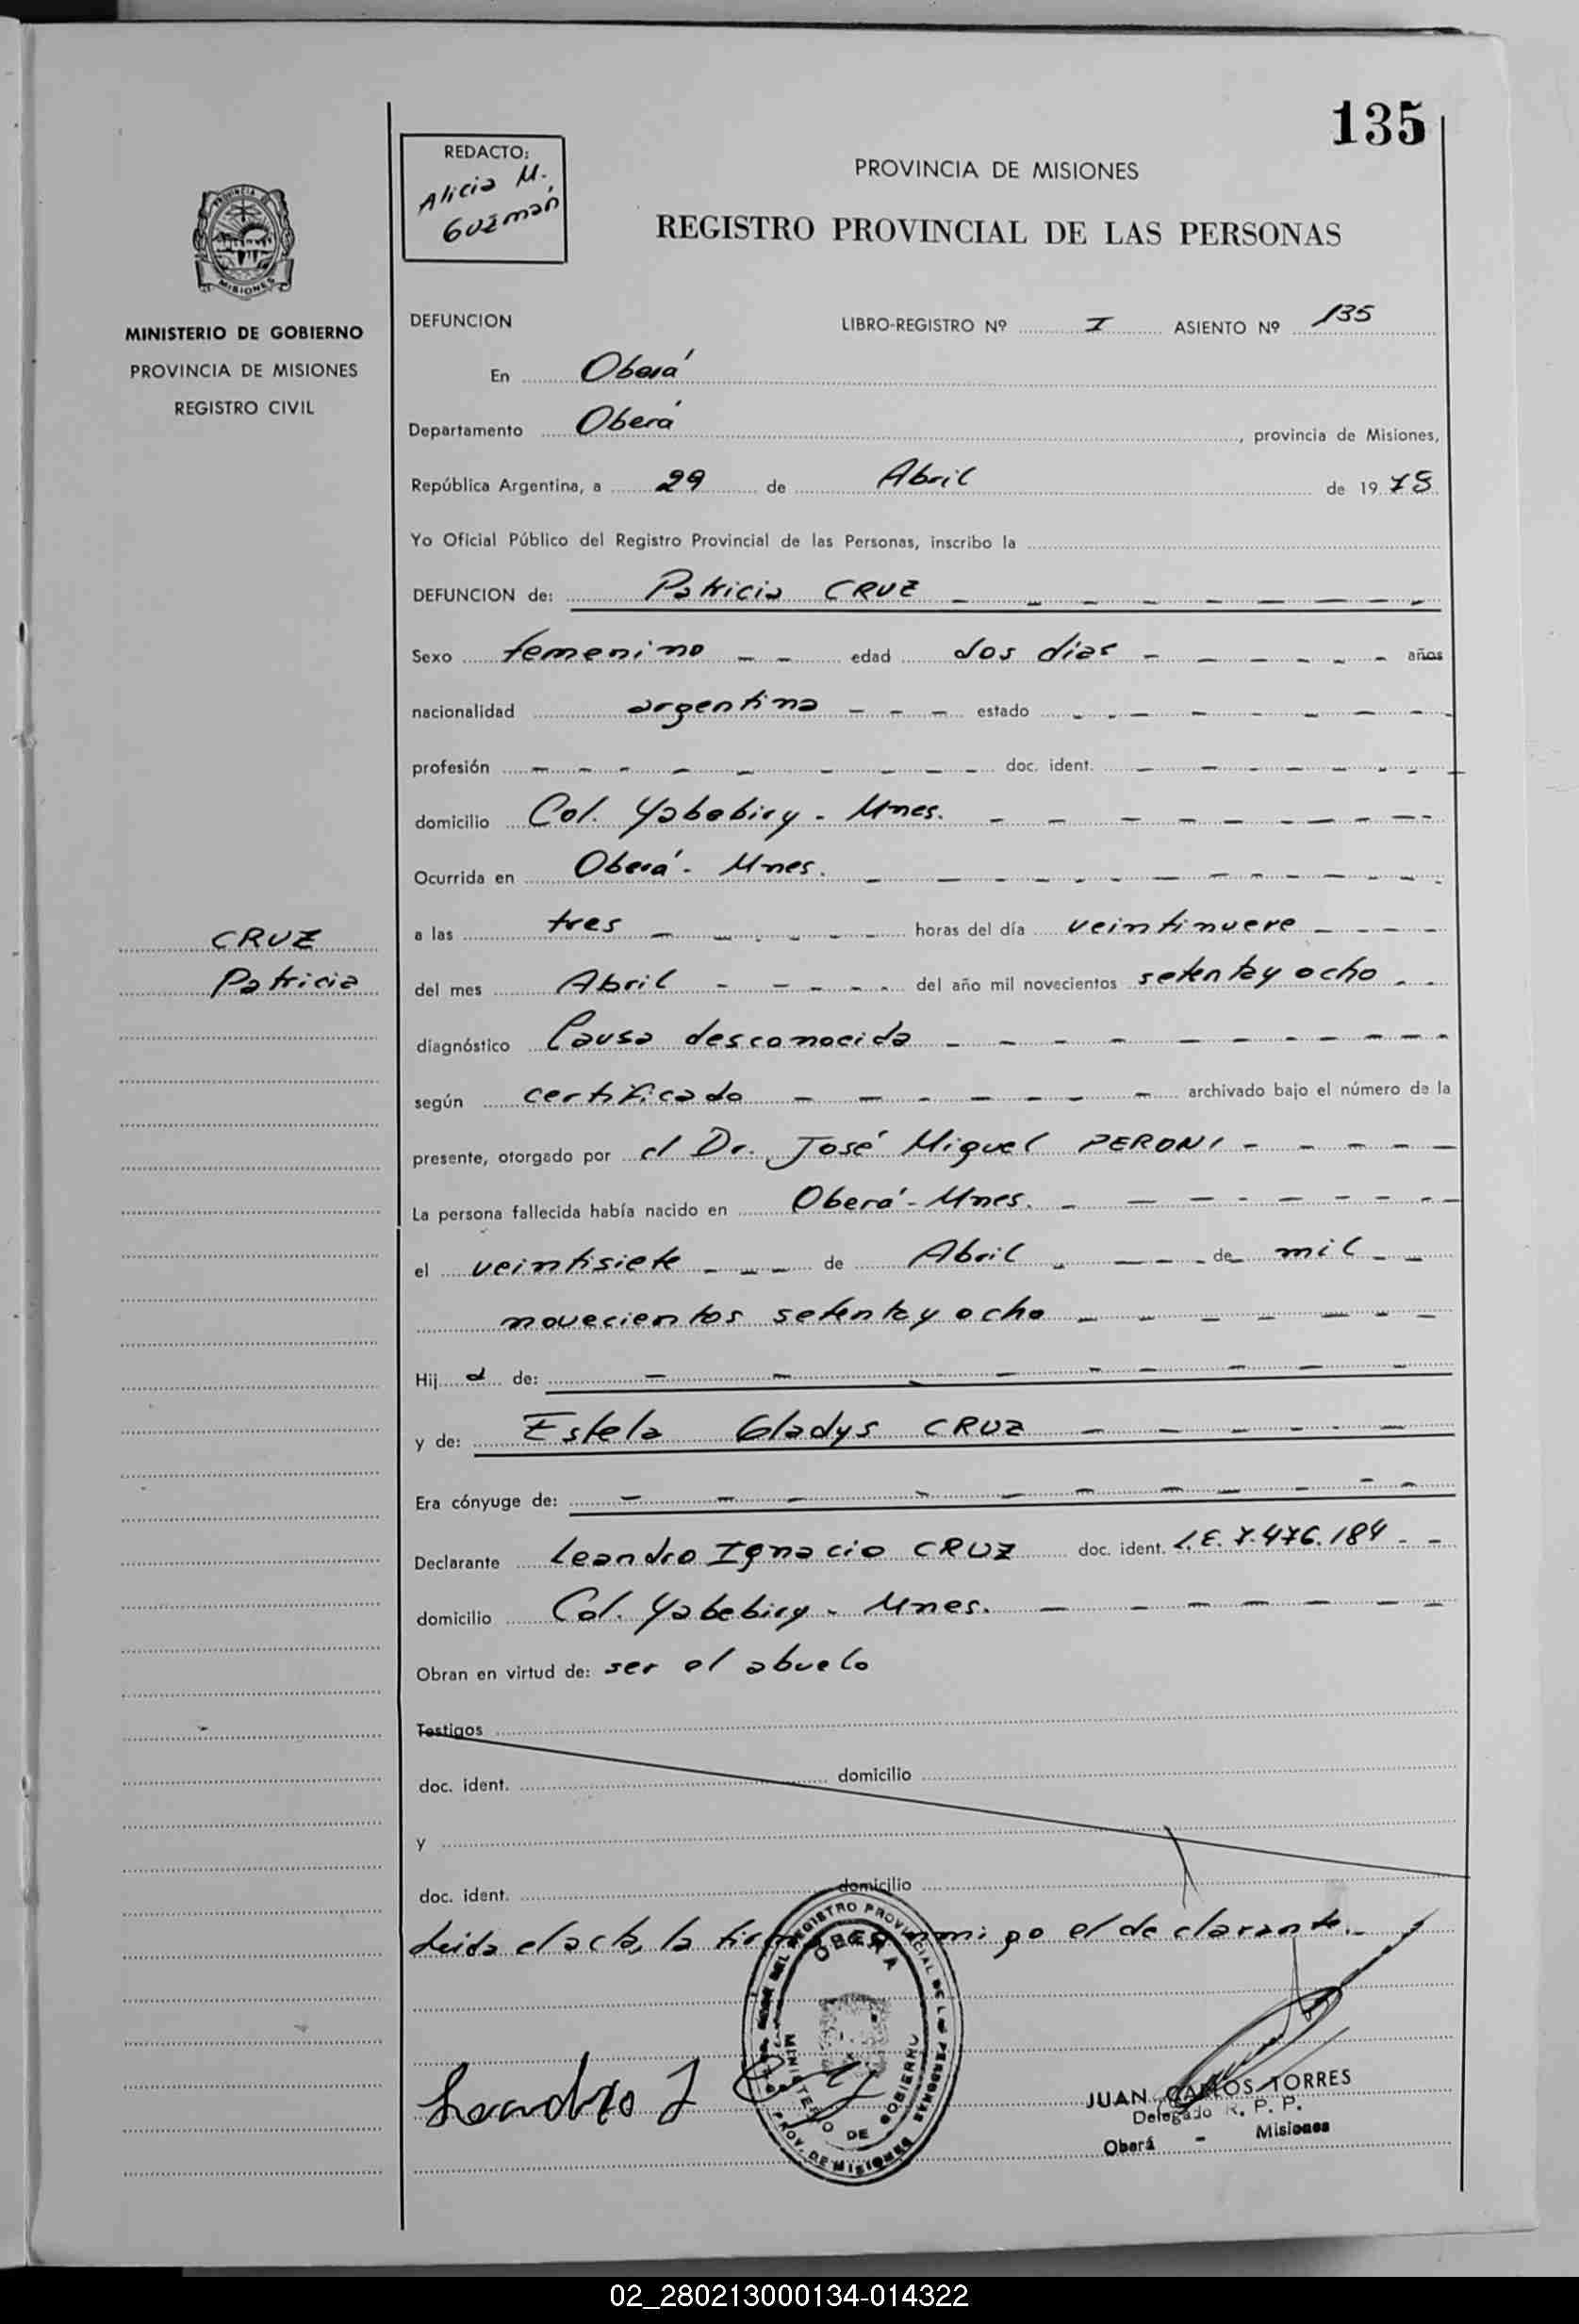 135
REDACTO:
Alicia M.
Guzmán
PROVINCIA DE MISIONES
REGISTRO PROVINCIAL DE LAS PERSONAS
PROVINCIA DE
MISIONES
MINISTERIO DE GOBIERNO
PROVINCIA DE MISIONES
REGISTRO CIVIL
DEFUNCION LIBRO-REGISTRO Nº I ASIENTO Nº 135
En Oberá
Departamento Oberá, provincia de Misiones,
República Argentina, a 29 de Abril de 1978
Yo Oficial Público del Registro Provincial de las Personas, inscribo la
DEFUNCION de: Patricia CRUZ
Sexo femenino edad dos días años
nacionalidad argentina estado
profesión doc. ident.
domicilio Col. Yabebiry - Mnes.
Ocurrida en Oberá - Mnes.
CRUZ
Patricia
a las tres horas del día veintinueve
del mes Abril del año mil novecientos setenta y ocho
diagnóstico Causa desconocida
según certificado archivado bajo el número de la
presente, otorgado por el Dr. José Miguel PERONI
La persona fallecida había nacido en Oberá - Mnes.
el veintisiete de Abril de mil
novecientos setenta y ocho
Hij a de:
y de: Estela Gladys CRUZ
Era cónyuge de:
Declarante Leandro Ignacio CRUZ doc. ident. L.E. 7.476.184
domicilio Col. Yabebiry - Mnes.
Obran en virtud de: ser el abuelo
Testigos
doc. ident. domicilio
y
doc. ident. domicilio
Leida el acta, la firma conmigo el declarante.
REGISTRO PROVINCIAL DE LAS PERSONAS
OBERA
MINISTERIO DE GOBIERNO
PROV. DE MISIONES
Leandro I
JUAN CARLOS TORRES
Delegado R. P. P.
Oberá - Misiones
02_280213000134-014322